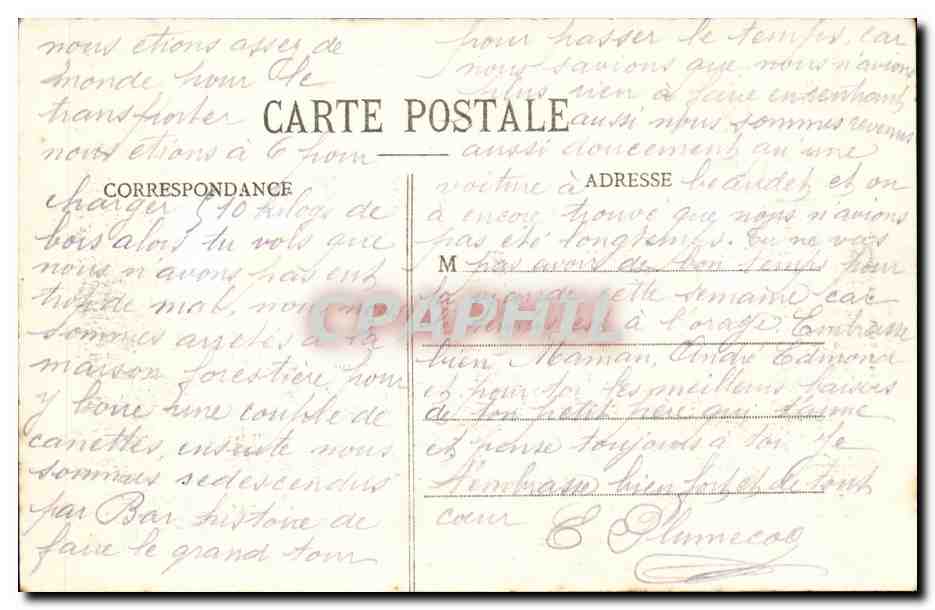 nous etions assez de
monde pour le
transporter
nous etions à 6 pour
CARTE POSTALE
CORRESPONDANCE
charger 510 kilogs de
bois alors tu vois que
nous n'avons pas eut
trop de mal, nous nous
sommes arretés à la
maison forestière pour
y boire une couble de
canettes, ensuite nous
sommes redescendus
par Bar histoire de
faire le grand tour
pour passer le temps, car
nous savions que nous n'avions
plus rien à faire en rentrant,
aussi nous sommes revenus
aussi doucement qu'une
ADRESSE
voiture à beaudet, et on
à encore trouvé que nous n'avions
pas été longtemps. Tu ne vas
M
pas avoir de bon temps pour
la cette semaine car
le est à l'orage. Embrasse
bien Maman, André Edmond
et pour toi les meilleurs baisers
de ton petit qui t'aime
et pense toujours à toi. Je
t'embrasse bien fort et de tout
coeur
E Plumecoq
CPAPHIL